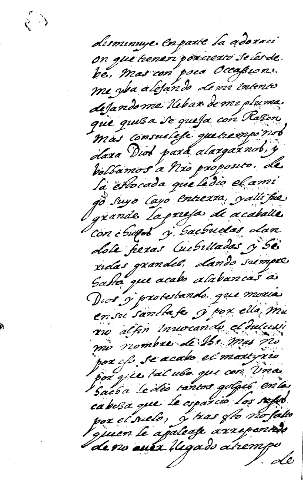 disminuye en parte la adoraci
on que tienen por cierto se les de
be. Mas con poca Occassion
me yba alejando de mi intento
dejandome llebar de mi pluma
que quisa se queja con Rason,
Mas consuelese que tiempo nos
dara Dios para alargarnos, y
bolbamos a Nro proposito. de
la estocada que le dio el ami
go suyo cayo en tierra, y alli fue
grande la priesa de acaballe
con chusos y Gachuelas dan
dole fieras cuchilladas y he
ridas grandes, dando siempre
hasta que acabo alabancas a
Dios y protestando que moria
en su santa fe y por ella, Mu
rio al fin invocando el dulcissi
mo nombre de Ihs. Mas no
por esso se acabo el martyrio
por q̃ tal ubo que con una
hacha le dio tantos golpes en la
cabeza que le esparcio los sesos
por el suelo, y tras esto no falto
quien le apalease arrepentido
de no auer llegado a tiempo
de